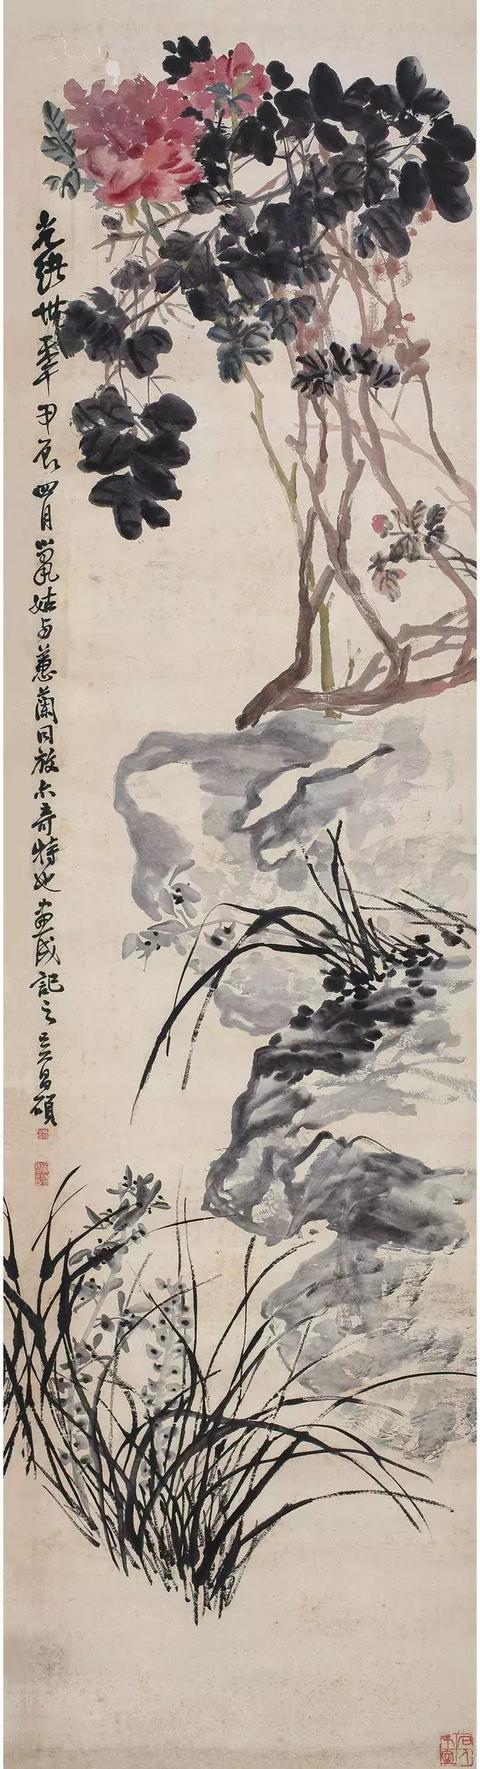 光緒卅年甲辰四月鼠姑与蕙蘭同放亦奇特也畫成記之吳昌碩
石人子室